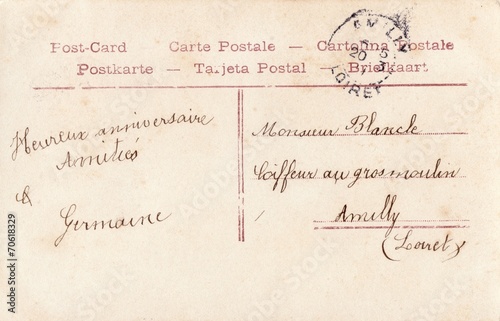 Post-Card Carte Postale — Cartolina Postale
Postkarte — Tarjeta Postal — Briefkaart
LOIRET
Heureux anniversaire
Amitiés
&
Germaine
Monsieur Blancle
Coiffeur au gros moulin
Amilly
(Loiret)
© Stockwerkfotodesign / 70618329
Adobe Stock